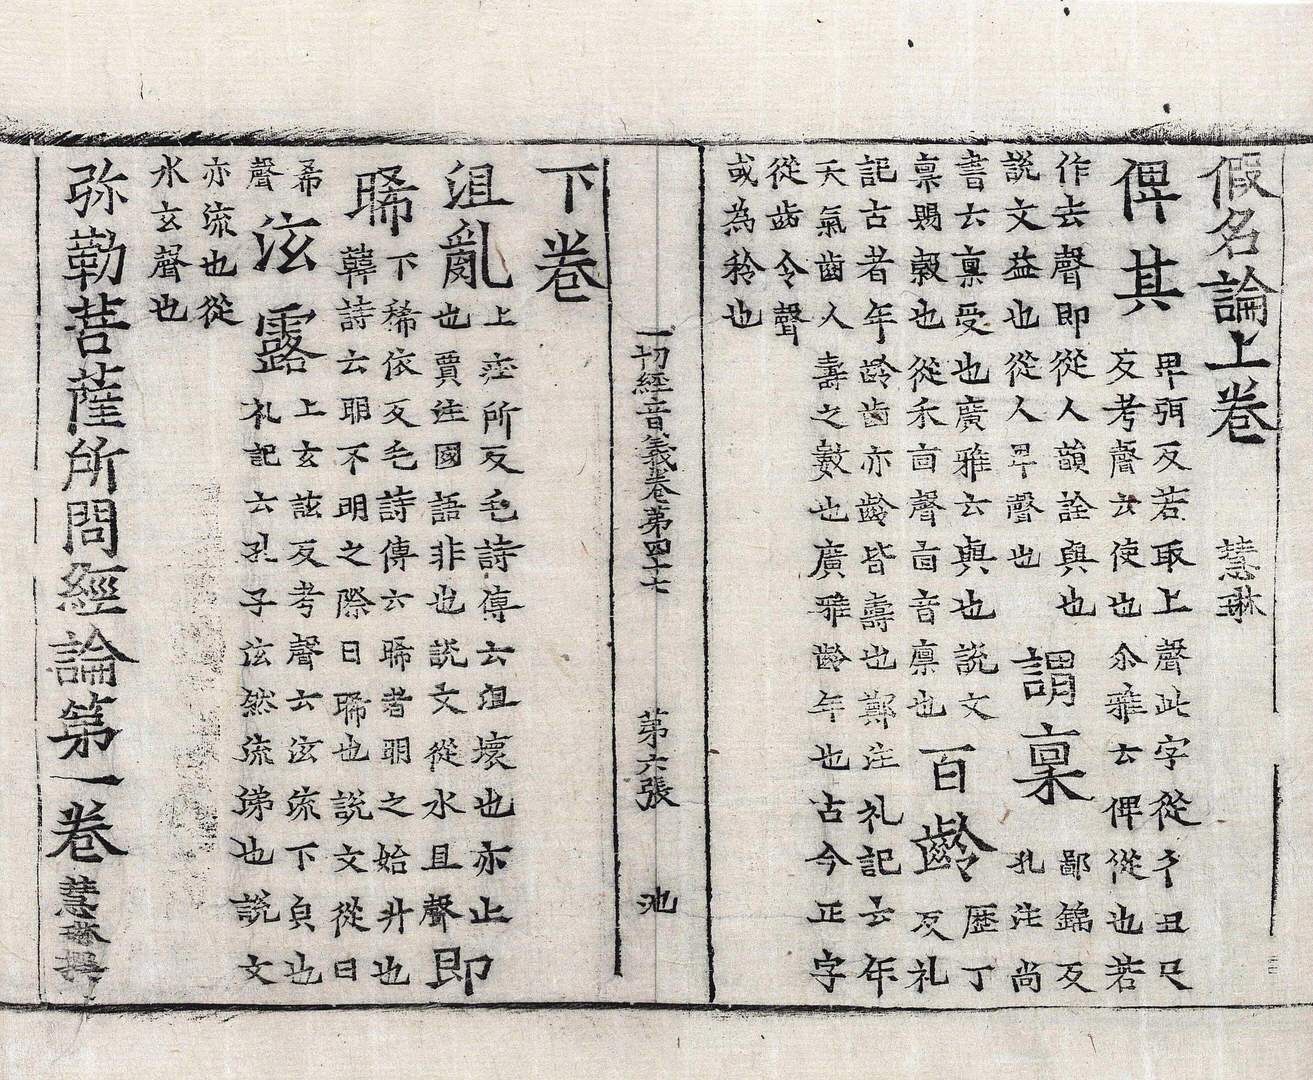 假名論上卷 慧琳
俾其
卑弭反若取上聲此字從彳丑尺
反考聲云使也尒雅云俾從也若
作去聲即從人韻詮與也
說文益也從人卑聲也
謂稟
鄙錦反
孔注尚
書云稟受也廣雅云與也說文
稟賜穀也從禾㐭聲㐭音廩也
百齡
歷丁
反礼
記古者年齡齒亦齡皆壽也鄭注礼記云年
天氣齒人壽之數也廣雅齡年也古今正字
從齒令聲
或為秢也
一切經音義卷第四十七 第六張 池
下卷
沮亂
上疽所反毛詩傳云沮壞也亦止
也賈注國語非也說文從水且聲
即
晞
下稀依反毛詩傳云晞者明之始升也
韓詩云耶不明之際曰晞也說文從日
希
聲
泫露
上玄詃反考聲云泫流下皃也
礼記云孔子泫然流涕也說文
亦流也從
水玄聲也
弥勒菩薩所問經論第一卷 慧琳撰